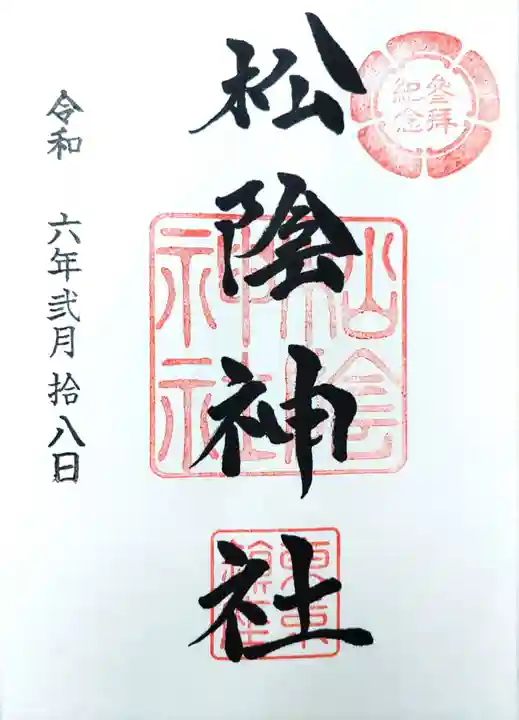 參拝
紀念
松陰神社
松陰
神社
令和 六年弐月拾八日